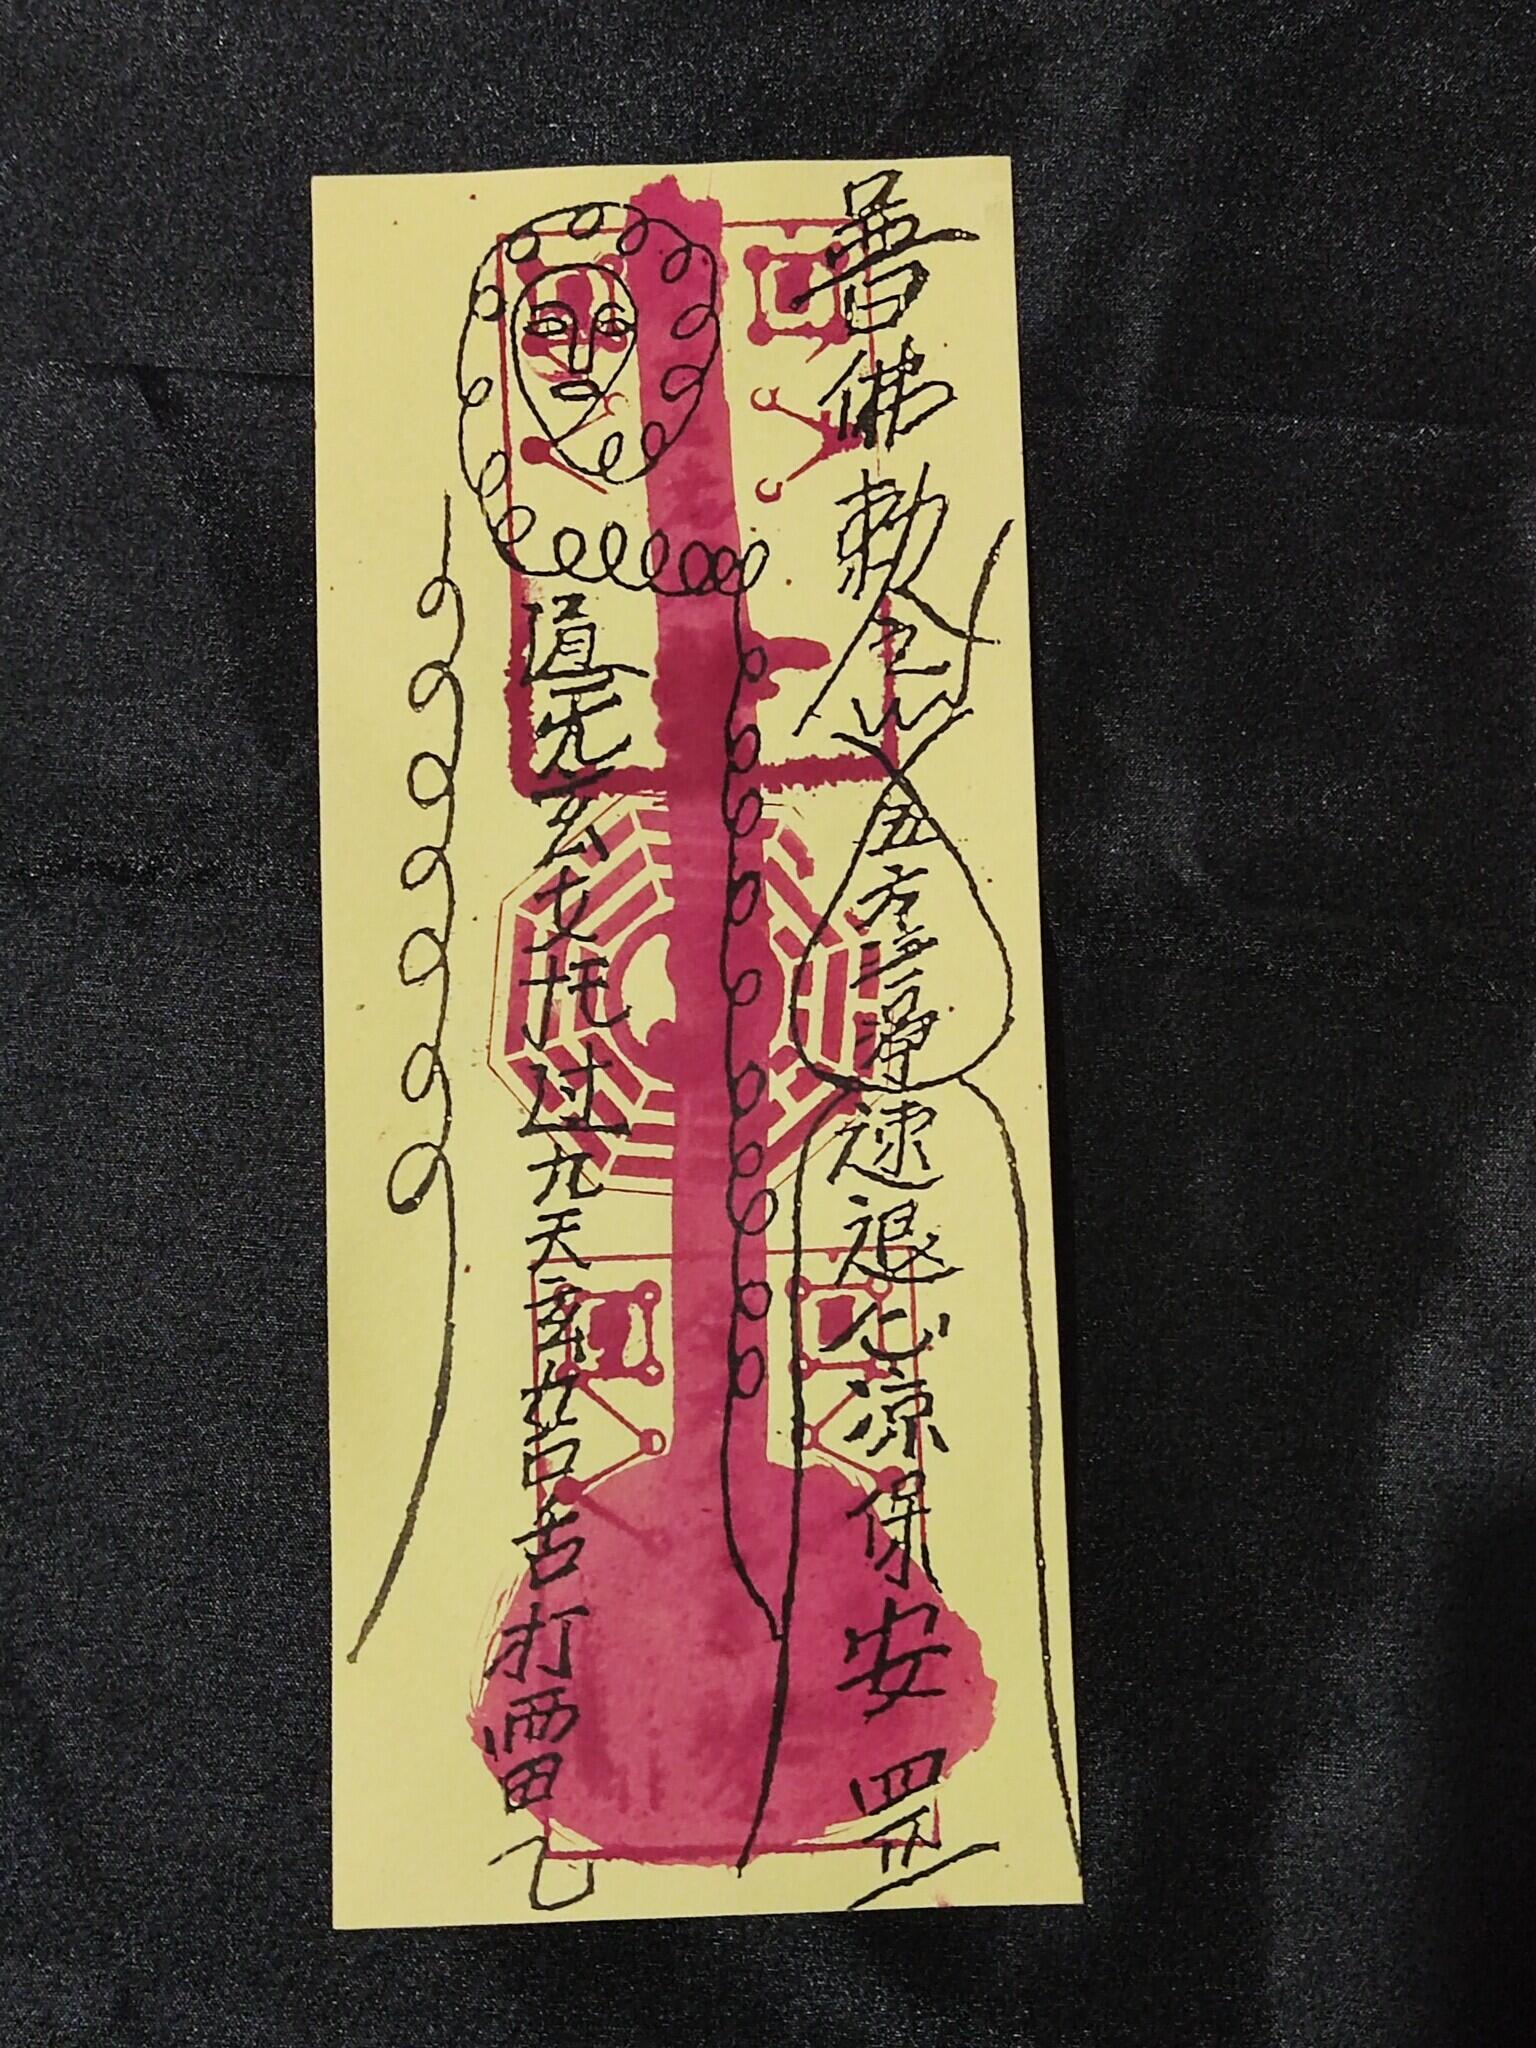 普佛敕令五方三净速退心凉保安罡
道元玄女托过九天玄女吉吉打雷